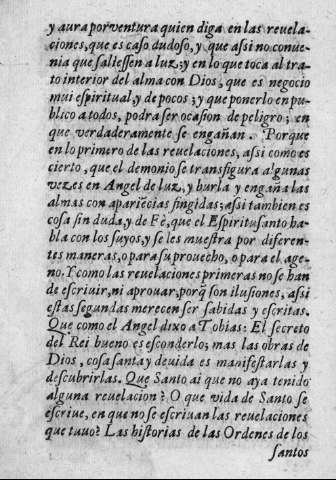 y aura porventura quien diga en las reuela-
ciones, que es caso dudoso, y que assi no conue-
nia que saliessen a luz; y en lo que toca al tra-
to interior del alma con Dios, que es negocio
mui espiritual, y de pocos; y que ponerlo en pu-
blico a todos, podra ser ocasion de peligro; en
que verdaderamente se engañan. Porque
en lo primero de las reuelaciones, assi como es
cierto, que el demonio se transfigura algunas
vezes en Angel de luz, y burla y engaña las
almas con apariẽcias fingidas; assi tambien es
cosa sin duda, y de Fè, que el Espiritusanto ha-
bla con los suyos, y se les muestra por diferen-
tes maneras, o para su prouecho, o para el age-
no. Y como las reuelaciones primeras no se han
de escriuir, ni aprouar, porq̃ son ilusiones, assi
estas segundas merecen ser sabidas y escritas.
Que como el Angel dixo a Tobias: El secreto
del Rei bueno es esconderlo; mas las obras de
Dios, cosa santa y deuida es manifestarlas y
descubrirlas. Que Santo ai que no aya tenido
alguna reuelacion? O que vida de Santo se
escriue, en que no se escriuan las reuelaciones
que tuuo? Las historias de las Ordenes de los
santos